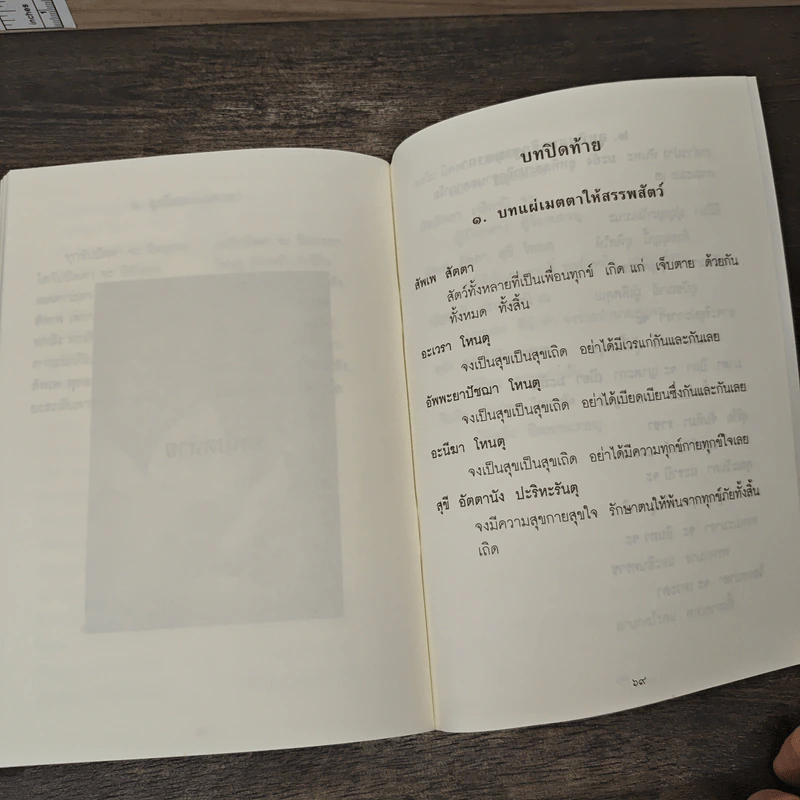 inches
บทปิดท้าย
๑. บทแผ่เมตตาให้สรรพสัตว์
สัพเพ สัตตา
สัตว์ทั้งหลายที่เป็นเพื่อนทุกข์ เกิด แก่ เจ็บตาย ด้วยกัน
ทั้งหมด ทั้งสิ้น
อะเวรา โหนตุ
จงเป็นสุขเป็นสุขเถิด อย่าได้มีเวรแก่กันและกันเลย
อัพพะยาปัชฌา โหนตุ
จงเป็นสุขเป็นสุขเถิด อย่าได้เบียดเบียนซึ่งกันและกันเลย
อะนีฆา โหนตุ
จงเป็นสุขเป็นสุขเถิด อย่าได้มีความทุกข์กายทุกข์ใจเลย
สุขี อัตตานัง ปะริหะรันตุ
จงมีความสุขกายสุขใจ รักษาตนให้พ้นจากทุกข์ภัยทั้งสิ้น
เถิด
๖๙